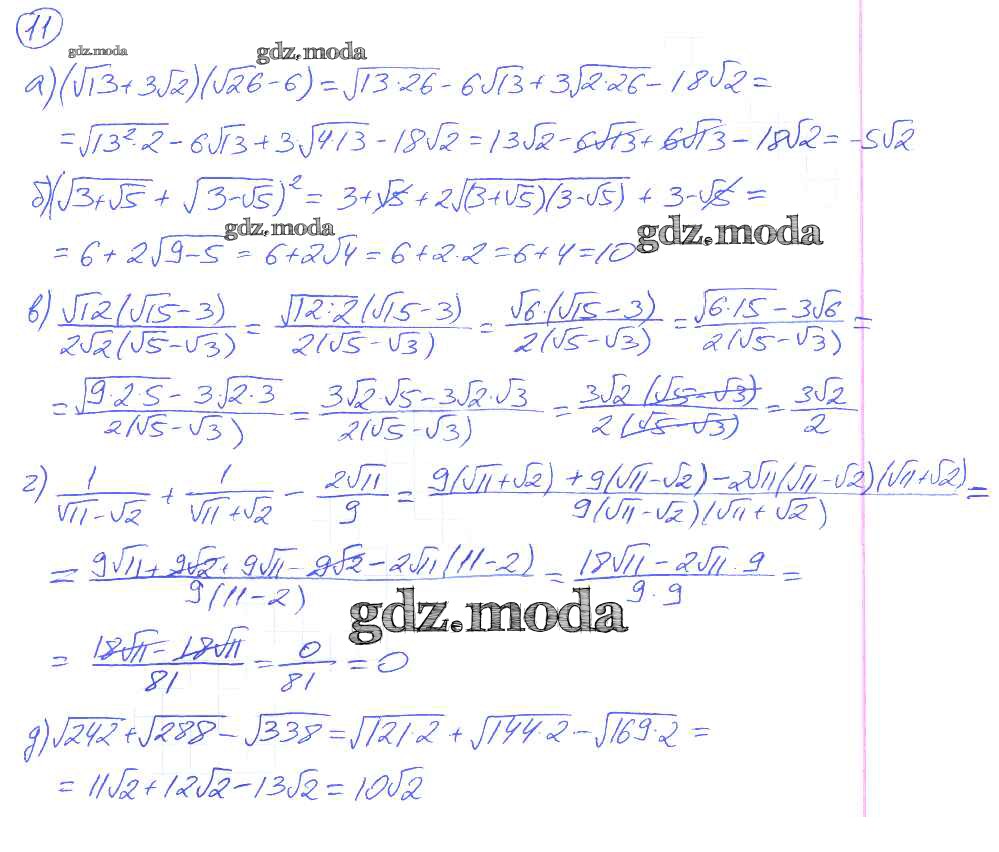 11
gdz.moda
gdz.moda
а) (√13 + 3√2)(√26 - 6) = √13·26 - 6√13 + 3√2·26 - 18√2 =
= √13²·2 - 6√13 + 3√4·13 - 18√2 = 13√2 - 6√13 + 6√13 - 18√2 = -5√2
б) (√3+√5 + √3-√5)² = 3+√5 + 2√(3+√5)(3-√5) + 3-√5 =
gdz.moda
gdz.moda
= 6 + 2√9-5 = 6+2√4 = 6+2·2 = 6+4 = 10
в) √12(√15-3)/2√2(√5-√3) = √12:2(√15-3)/2(√5-√3) = √6·(√15-3)/2(√5-√3) = √6·15 - 3√6/2(√5-√3) =
= √9·2·5 - 3√2·3/2(√5-√3) = 3√2·√5 - 3√2·√3/2(√5-√3) = 3√2(√5-√3)/2(√5-√3) = 3√2/2
г) 1/√11-√2 + 1/√11+√2 - 2√11/9 = 9(√11+√2) + 9(√11-√2) - 2√11(√11-√2)(√11+√2)/9(√11-√2)(√11+√2) =
= 9√11 + 9√2 + 9√11 - 9√2 - 2√11(11-2)/9(11-2) = 18√11 - 2√11·9/9·9 =
gdz.moda
= 18√11 - 18√11/81 = 0/81 = 0
д) √242 + √288 - √338 = √121·2 + √144·2 - √169·2 =
= 11√2 + 12√2 - 13√2 = 10√2